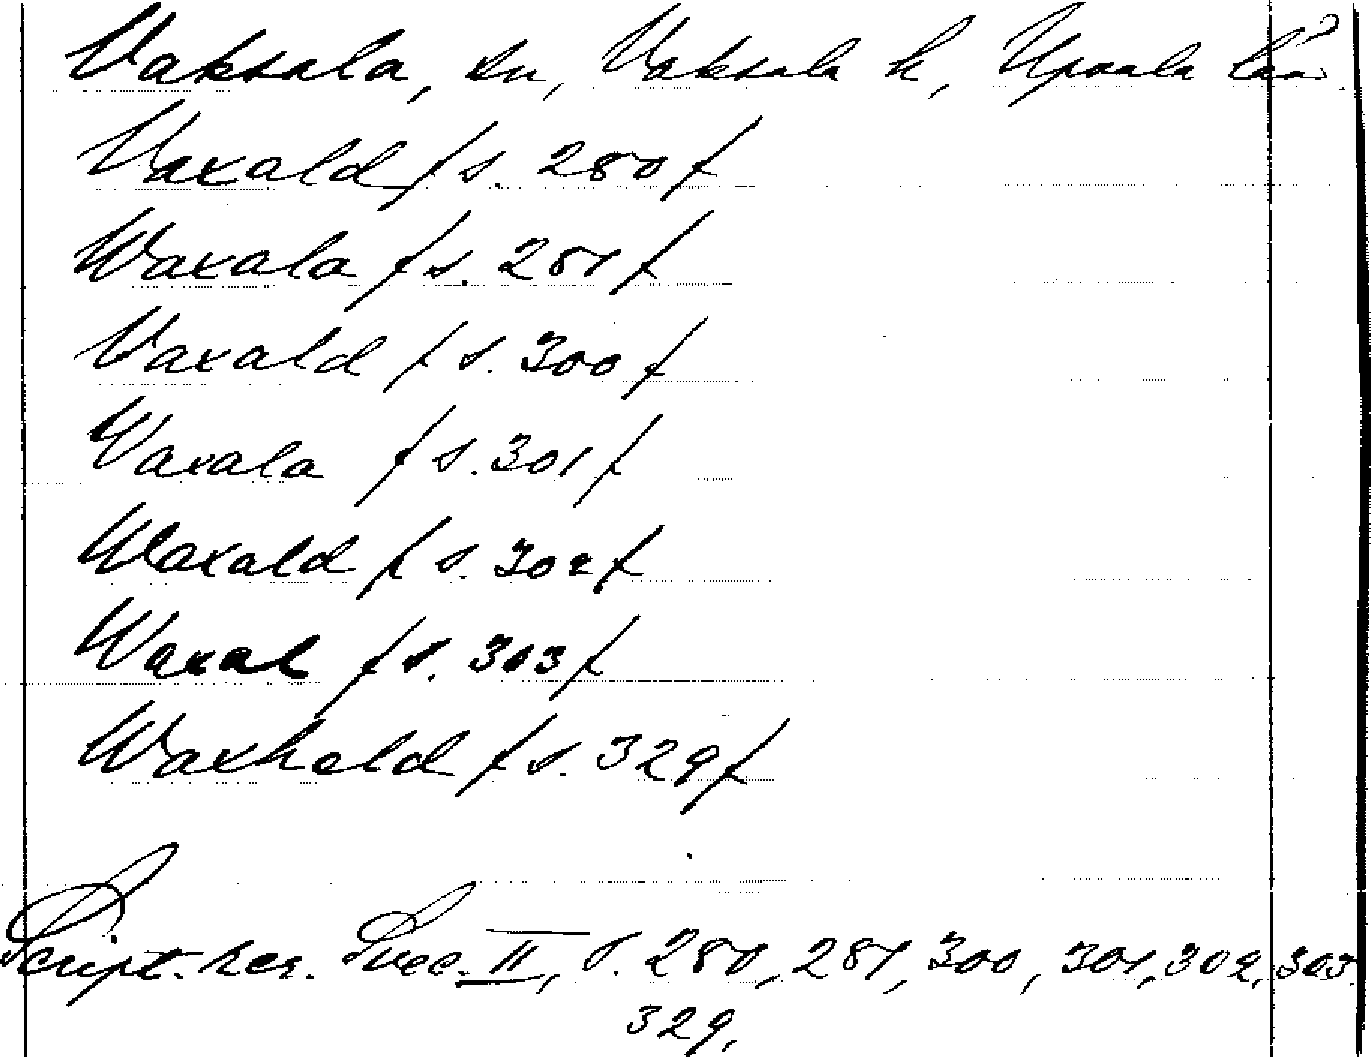 Vaksala, sn, Vaksala h, Upsala län
Vaxald /s. 280/
Waxala /s. 281/
Vaxald /s. 300/
Vaxala /s. 301/
Waxald /s. 302/
Waxal /s. 303/
Waxheld /s. 329/
Script. rer. Svec. II, s. 280, 281, 300, 301, 302, 303.
329,